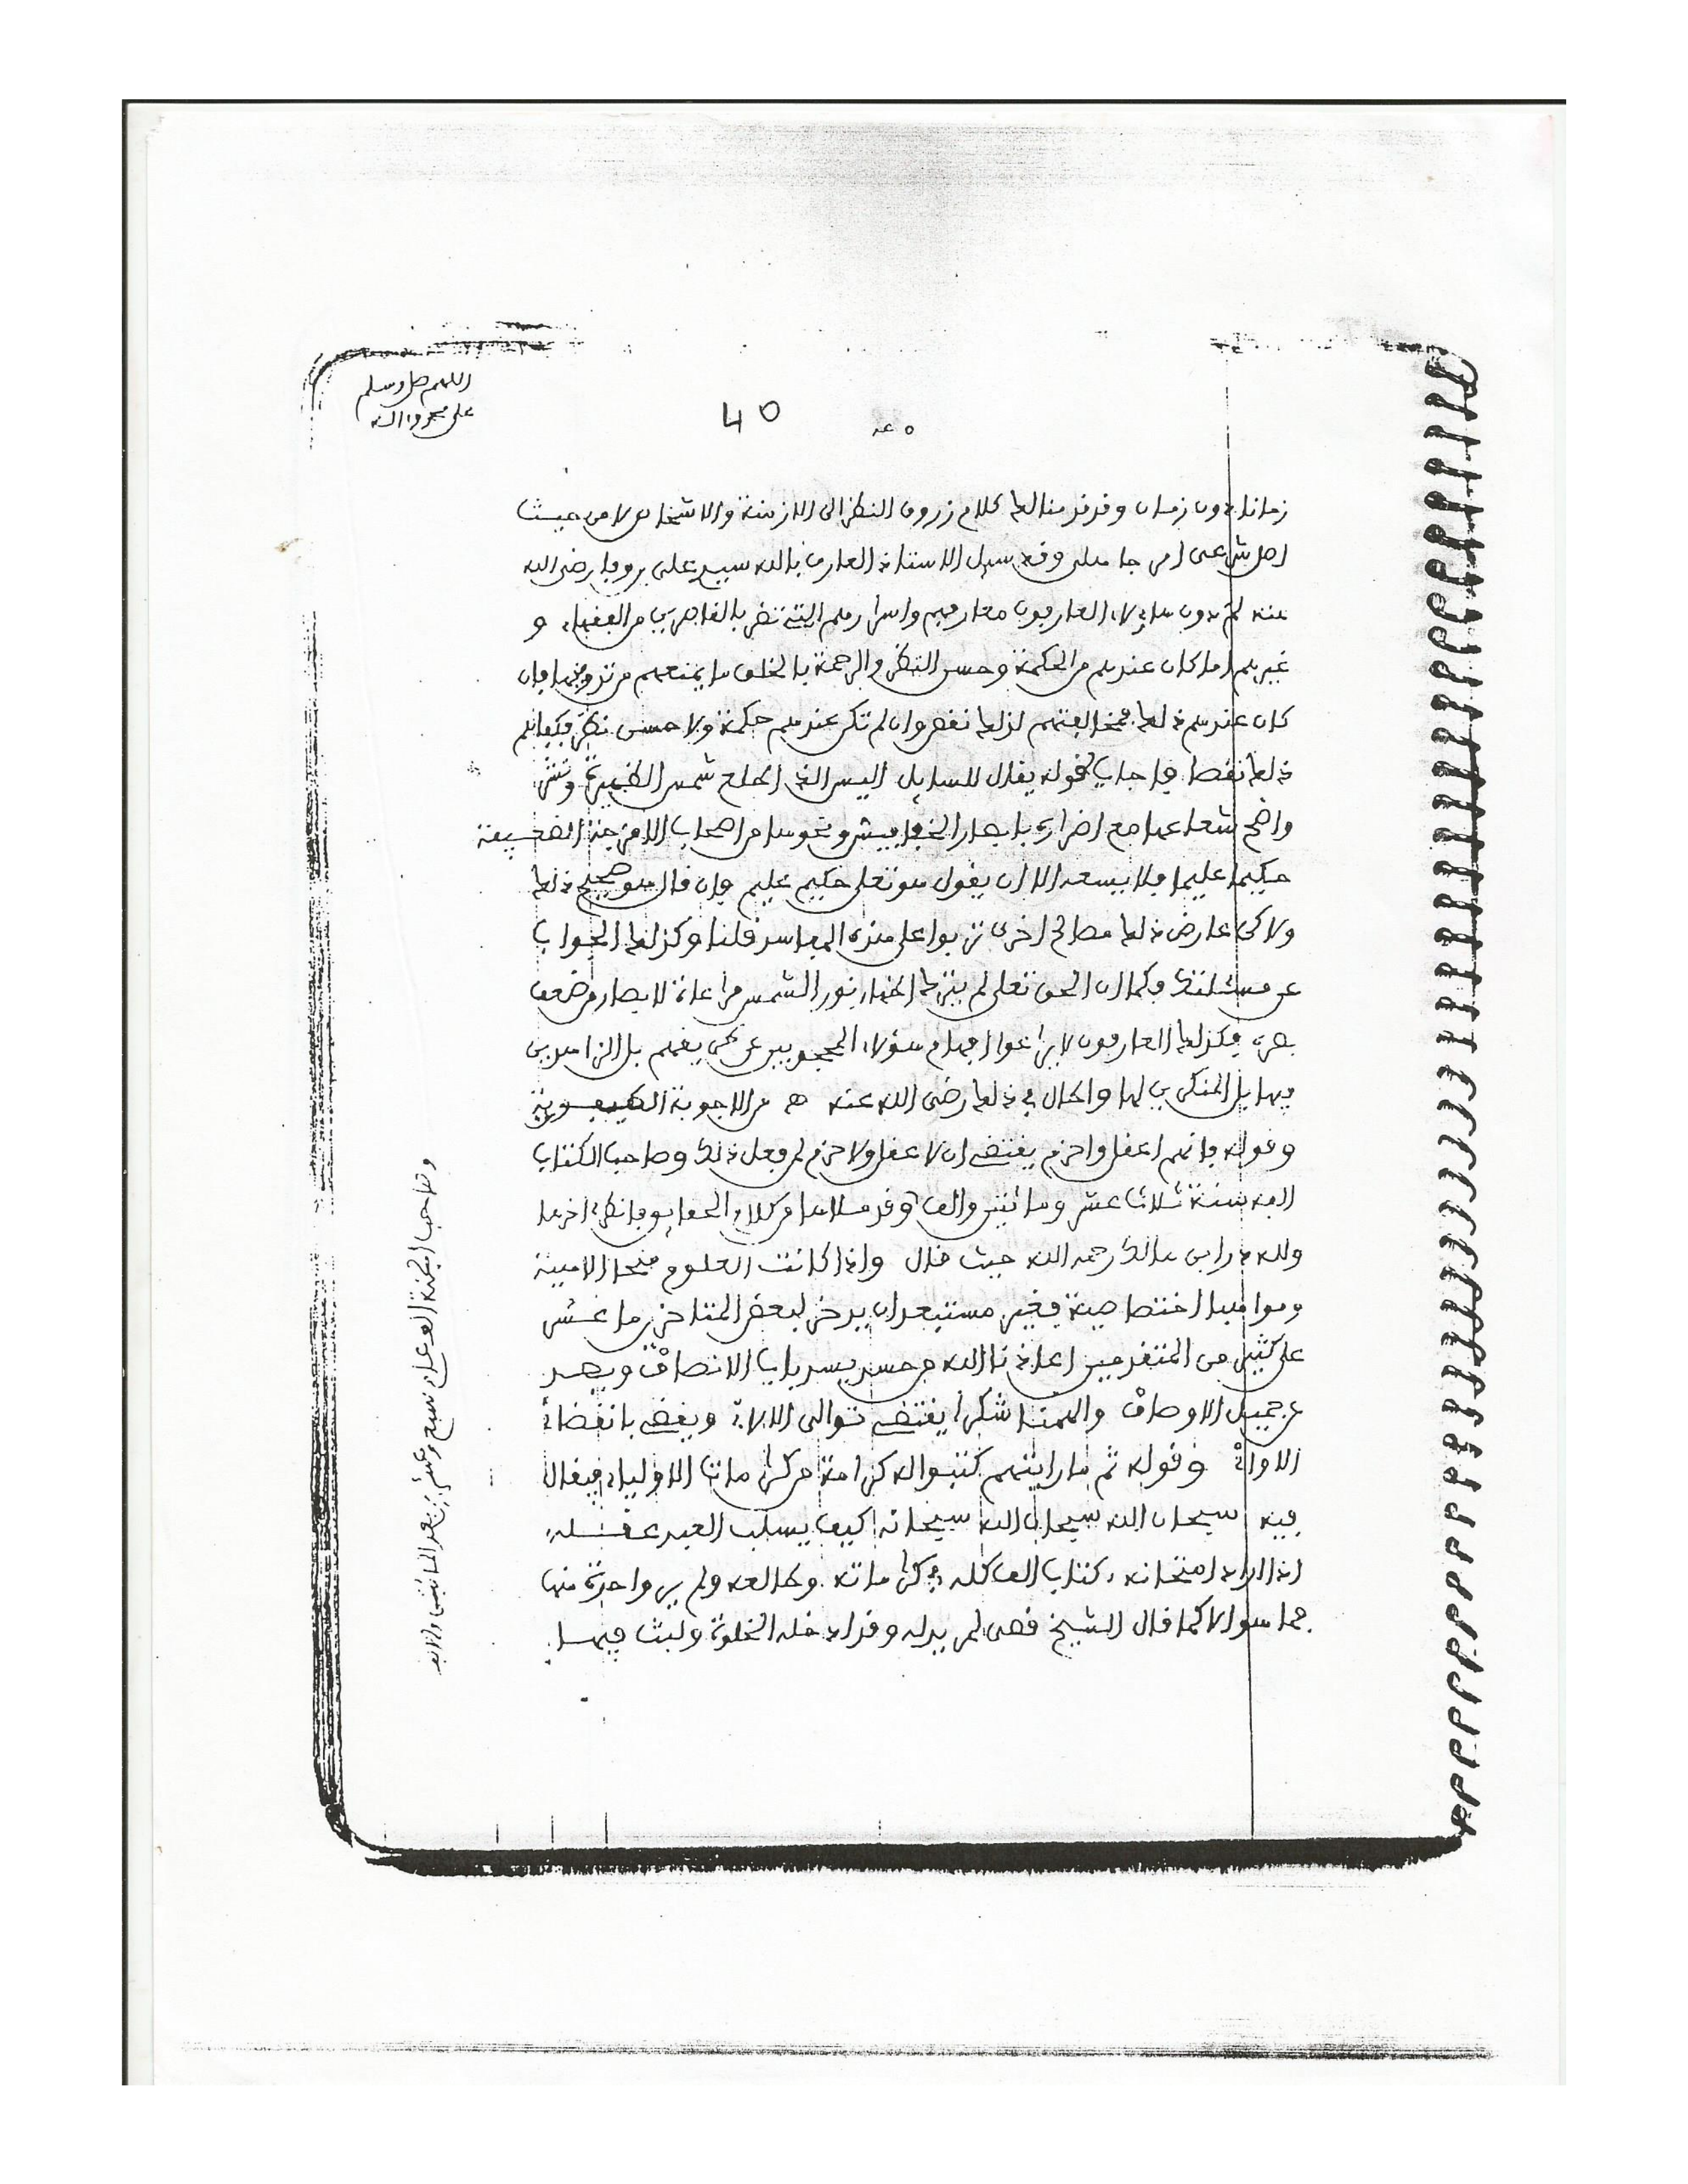 اللهم صل وسلم
على محمد وآله
40
زمانا دون زمان وقد قدمنا لك كلام زروق النظر الى الازمنة والاشخاص لا من حيث
اصل شرعي امر جاهلي وقد سيل الاستاذ العارف بالله سيد علي بن وفا رضي الله
عنه لم دون هاولاء العارفون معارفهم واسرارهم التي تضر بالقاصرين من الفقهاء و
غيرهم اما كان عندهم من الحكمة وحسن النظر والرحمة بالخلق ما يمنعهم من تدوينها فإن
كان عندهم ذلك فمخالفتهم لذلك نقص وان لم تكن عندهم حكمة ولا حسن نظر فكفاهم
ذلك نقصا فاجاب بقوله يقال للسايل اليس الذي اطلع شمس الظهيرة ونشر
واضح شعاعها مع اضراره بابصار الخفافيش ونحوها من اصحاب الامزجة الضعيفة
حكيما عليما فلا يسعه الا ان يقول هو تعلى حكيم عليم فإن قال هو صحيح ذلك
ولاكن عارض ذلك مصالح اخرى تربوا على هذه المفاسد قلنا وكذلك الجواب
عن مسئلتك فكما ان الحق تعلى لم يترك اظهار نور الشمس مراعاة لابصار من ضعف
بصره فكذلك العارفون لا يراعوا افهام هؤلاء المحجوبين عن طريقهم بل الزاهدين
فيها بل المنكرين لها واطال في ذلك رضي الله عنه هـ من الاجوبة
وقوله فانهم اعقل واحزم يقتضي ان لا عقل ولا حزم لمن فعل ذلك وصاحب الكتاب
الفه سنة ثلاث عشر ومائتين والف وقد من كلام فانظره اخرها
ولله در ابن مالك رحمه الله حيث قال واذا كانت العلوم منحا الاهية
ومواهبا اختصاصية فغير مستبعد ان يدخر لبعض المتاخرين ما عسر
على كثير من المتقدمين اعاذنا الله من حسد يسد باب الانصاف ويصد
عن جميل الاوصاف والهمنا شكرا يقتضي توالي الالاء ويقضي بانقضاء
الاواء وقوله ثم ما رايتهم كتبوا له كرامة من كرامات الاولياء فيقال
فيه سبحان الله سبحان الله سبحانه كيف يسلب العبد عقله
اذا اراد امتحانه كتاب الف كله في كراماته وطالعه ولم ير واحدة منها
فما هو الا كما قال الشيخ فهي لمن يدله وقد ادخله الخلوة ولبث فيها
وصاحب سبع وعشرين بعد المائتين والالف